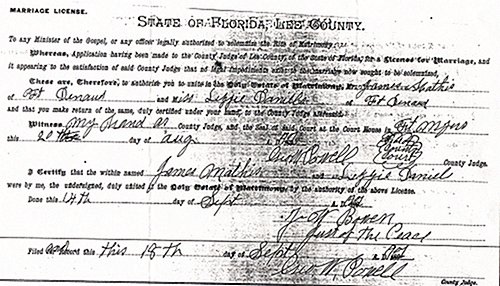 MARRIAGE LICENSE.
STATE OF FLORIDA, LEE COUNTY.
To any Minister of the Gospel, or any officer legally authorized to solemnize the Rites of Matrimony,
Whereas, Application having been made to the County Judge of Lee County, of the State of Florida, for a License for Marriage, and
it appearing to the satisfaction of said County Judge that no legal impediments exist to the marriage now sought to be solemnized,
These are, Therefore, to authorize you to unite in the Holy Estate of Matrimony, Mr James
of Fort Denaud and Miss Lizzie Daniels of Fort Denaud
and that you make return of the same, duly certified under your hand, to the County Judge aforesaid.
Witness My hand as County Judge, and the seal of said Court at the Court House in Fort Myers
this 20th day of Aug
Geo W Powell County Judge.
Court
I Certify that the within named James Mathis and Lizzie Daniel
were by me, the undersigned, duly united in the Holy Estate of Matrimony, by the authority of the above License.
Done this 14th day of Sept A. D.
J. W. Bowen
Just of the Peace
Filed and Record this 18th day of Sept A. D.
Geo W. Powell
County Judge.